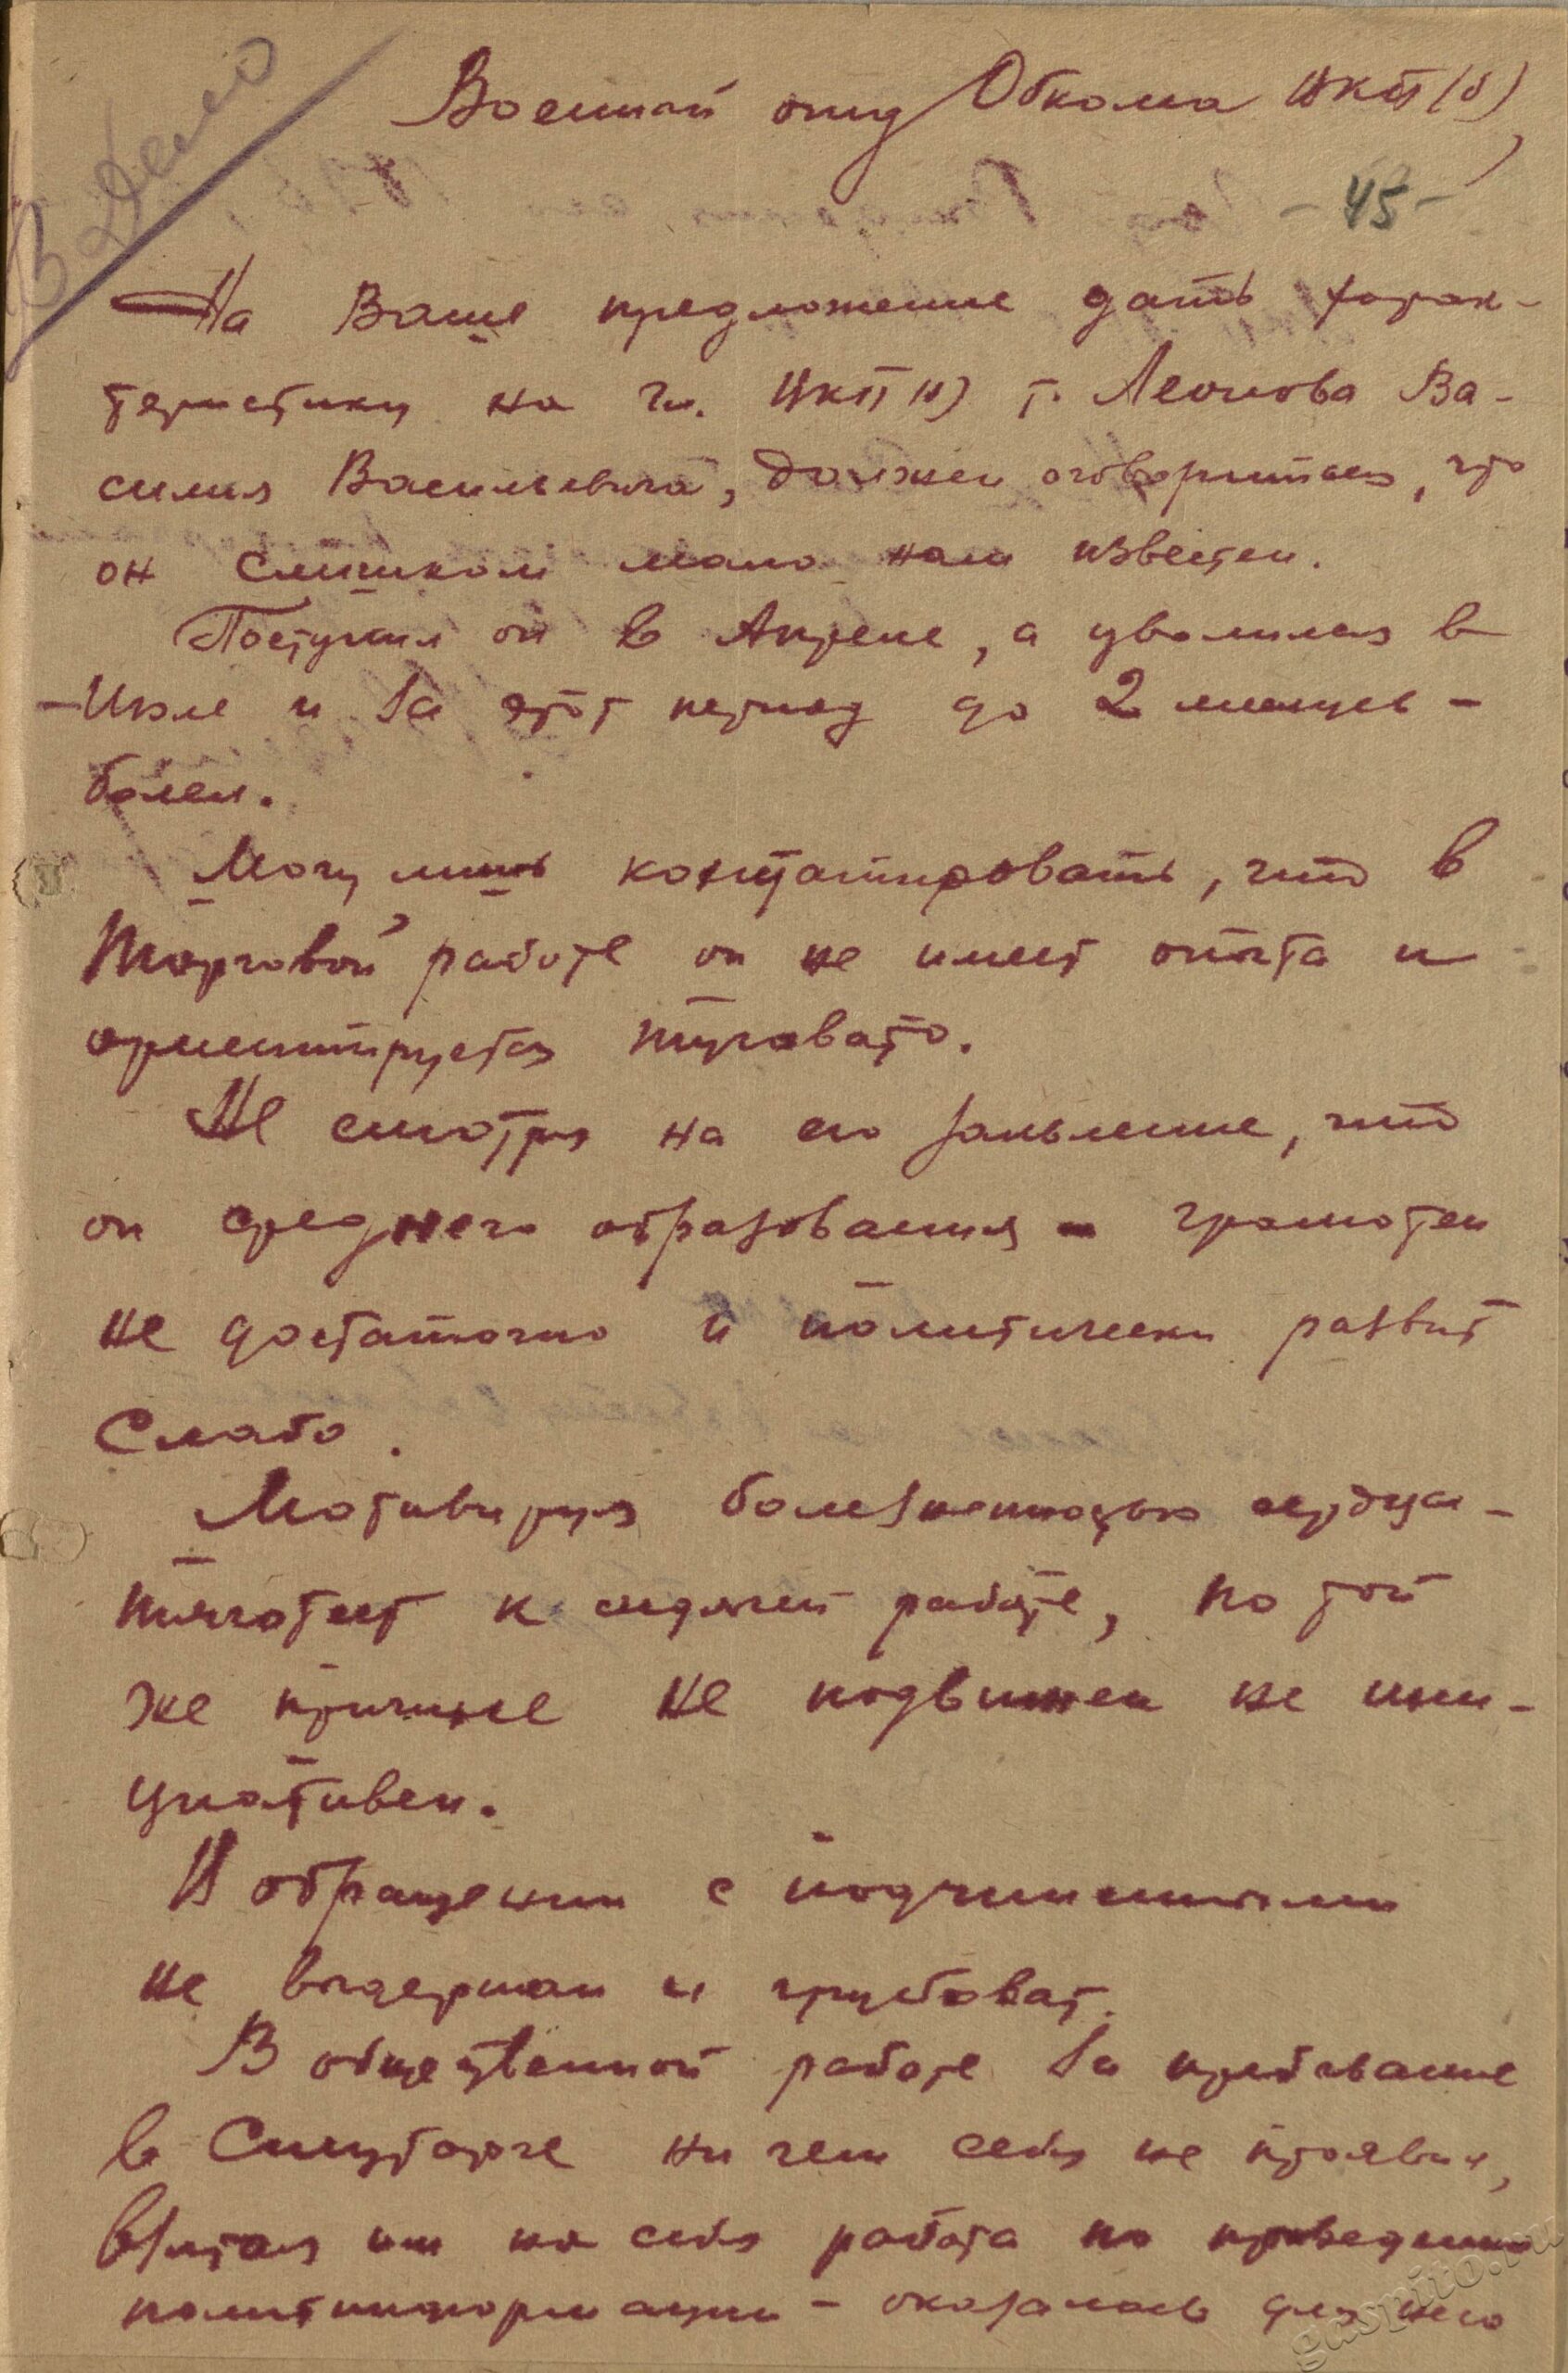 В Дело
Военный отд Обкома ВКП(б)
- 45 -
На Ваше предложение дать харак-
теристику на чл. ВКП(б) т. Леонова Ва-
силия Васильевича, должен оговориться, что
он слишком мало нам известен.
Поступил он в Апреле, а уволился в
Июле и за этот период до 2 месяцев -
болел.
Могу лишь констатировать, что в
торговой работе он не имеет опыта и
ориентируется туговато.
Не смотря на его заявление, что
он среднего образования - грамотен
не достаточно и политически развит
слабо.
Мотивируя болезненностью сердца -
тяготеет к сидячей работе, по той
же причине не подвижен не ини-
циативен.
В обращении с подчиненными
не выдержан и грубоват.
В общественной работе за пребывание
в ни чем себя не проявил,
взятая им на себя работа по проведению
политинформации - оказалась для него
gaspito.ru